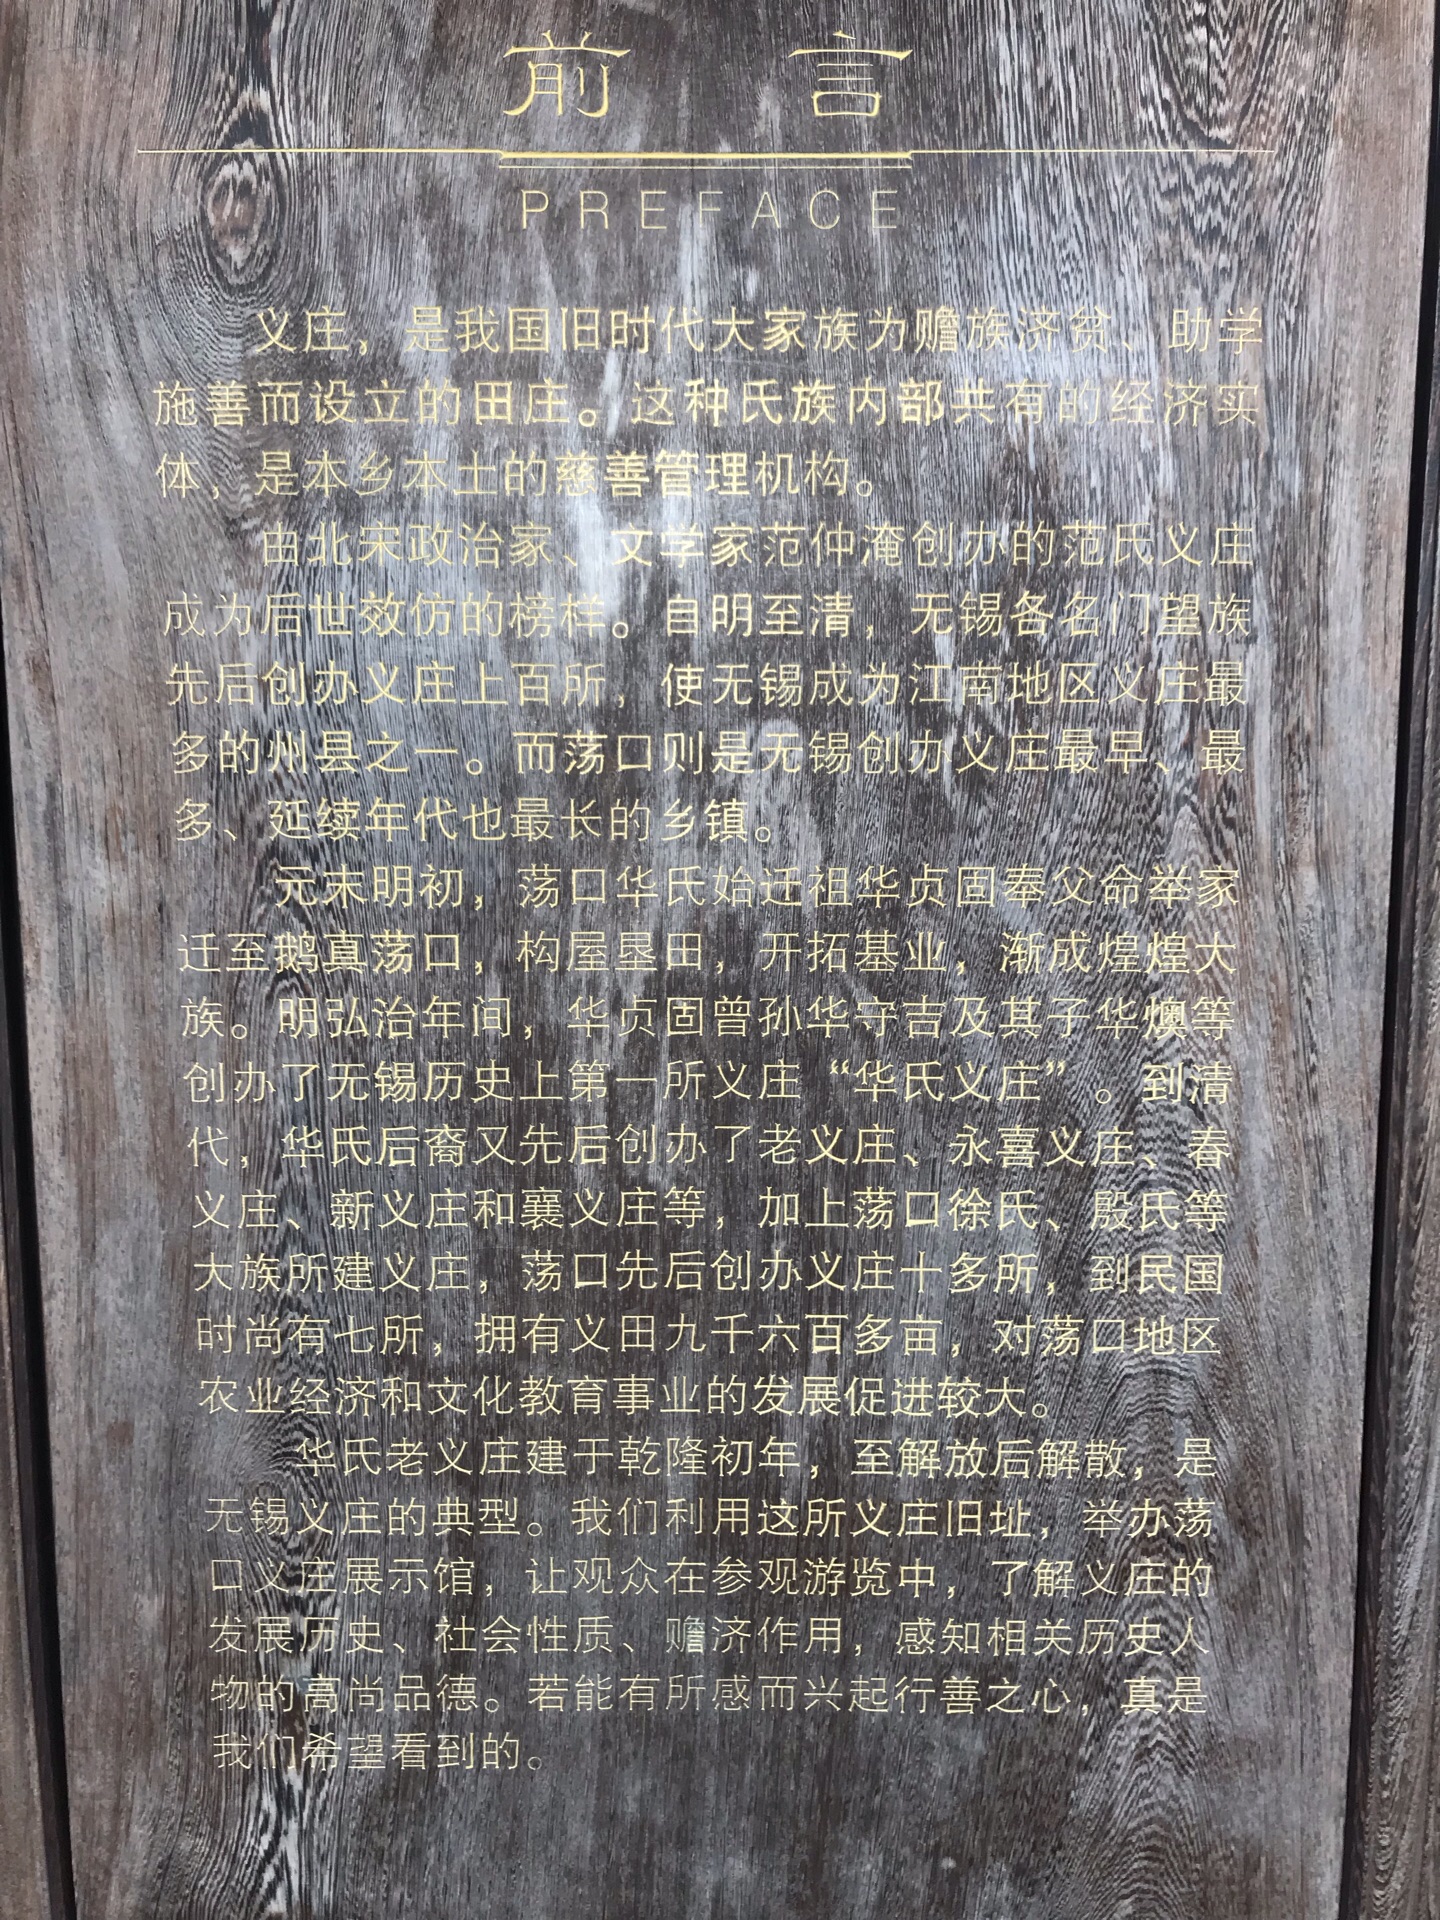 前言
PREFACE
义庄，是我国旧时代大家族为赡族济贫、助学
施善而设立的田庄。这种氏族内部共有的经济实
体，是本乡本土的慈善管理机构。
由北宋政治家、文学家范仲淹创办的范氏义庄
成为后世效仿的榜样。自明至清，无锡各名门望族
先后创办义庄上百所，使无锡成为江南地区义庄最
多的州县之一。而荡口则是无锡创办义庄最早、最
多、延续年代也最长的乡镇。
元末明初，荡口华氏始迁祖华贞固奉父命举家
迁至鹅真荡口，构屋垦田，开拓基业，渐成煌煌大
族。明弘治年间，华贞固曾孙华守吉及其子华燠等
创办了无锡历史上第一所义庄“华氏义庄”。到清
代，华氏后裔又先后创办了老义庄、永喜义庄、春
义庄、新义庄和襄义庄等，加上荡口徐氏、殷氏等
大族所建义庄，荡口先后创办义庄十多所，到民国
时尚有七所，拥有义田九千六百多亩，对荡口地区
农业经济和文化教育事业的发展促进较大。
华氏老义庄建于乾隆初年，至解放后解散，是
无锡义庄的典型。我们利用这所义庄旧址，举办荡
口义庄展示馆，让观众在参观游览中，了解义庄的
发展历史、社会性质、赡济作用，感知相关历史人
物的高尚品德。若能有所感而兴起行善之心，真是
我们希望看到的。